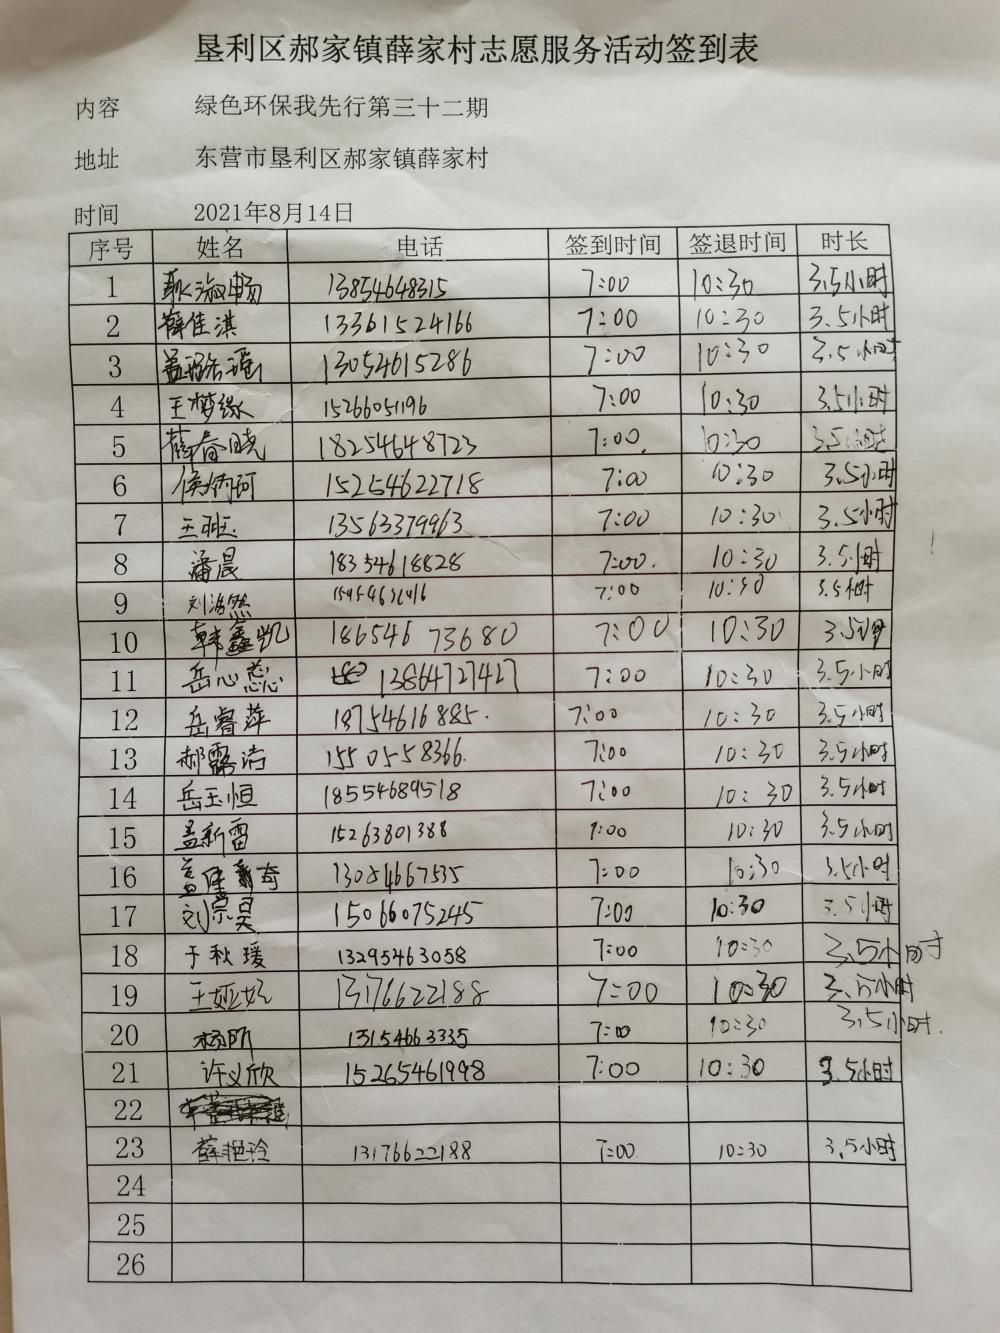 垦利区郝家镇薛家村志愿服务活动签到表
内容 绿色环保我先行第三十二期
地址 东营市垦利区郝家镇薛家村
时间 2021年8月14日
序号 姓名 电话 签到时间 签退时间 时长
1 耿淑畅 13854648315 7:00 10:30 3.5小时
2 薛佳淇 13361524166 7:00 10:30 3.5小时
3 13054615286 7:00 10:30 3.5小时
4 王梦缘 15266051196 7:00 10:30 3.5小时
5 薛春晓 18254648723 7:00 10:30 3.5小时
6 侯炳珂 15254622718 7:00 10:30 3.5小时
7 13563379963 7:00 10:30 3.5小时
8 潘晨 18354618828 7:00 10:30 3.5小时
9 刘浩然 7:00 10:30 3.5小时
10 韩鑫凯 18654673680 7:00 10:30 3.5小时
11 岳心蕊 13864727427 7:00 10:30 3.5小时
12 岳睿萍 18754616885. 7:00 10:30 3.5小时
13 郝露洁 15505558366. 7:00 10:30 3.5小时
14 岳玉恒 18554689518 7:00 10:30 3.5小时
15 孟新雷 15263801388 7:00 10:30 3.5小时
16 13054667535 7:00 10:30 3.5小时
17 刘宗昊 15066075245 7:00 10:30 3.5小时
18 于秋瑗 13295463058 7:00 10:30 3.5小时
19 王娅妃 13176622188 7:00 10:30 3.5小时
20 杨昕 13154663335 7:00 10:30 3.5小时.
21 许义欣 15265461998 7:00 10:30 3.5小时
22
23 薛艳玲 13176622188 7:00 10:30 3.5小时
24
25
26